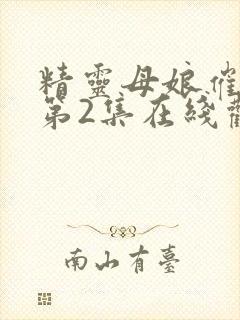 精靈母娘催
第2集在綫
南山有臺